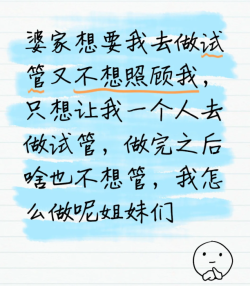 婆家想要我去做试
管又不想照顾我，
只想让我一个人去
做试管，做完之后
啥也不想管，我怎
么做呢姐妹们